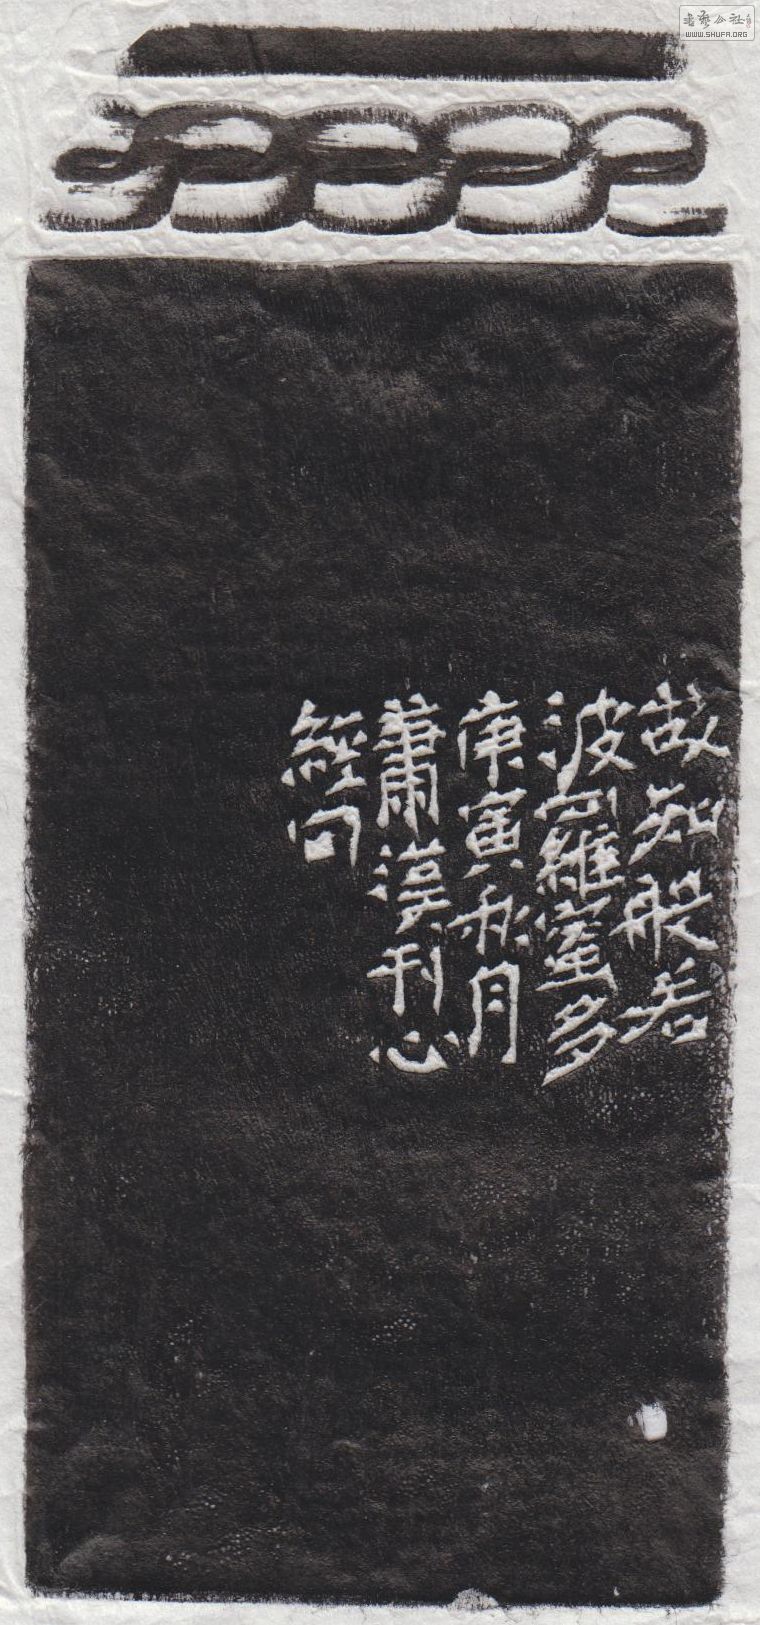 故知般若
波羅蜜多
庚寅秋月
蕭漢刊心
經句
书艺公社
WWW.SHUFA.ORG